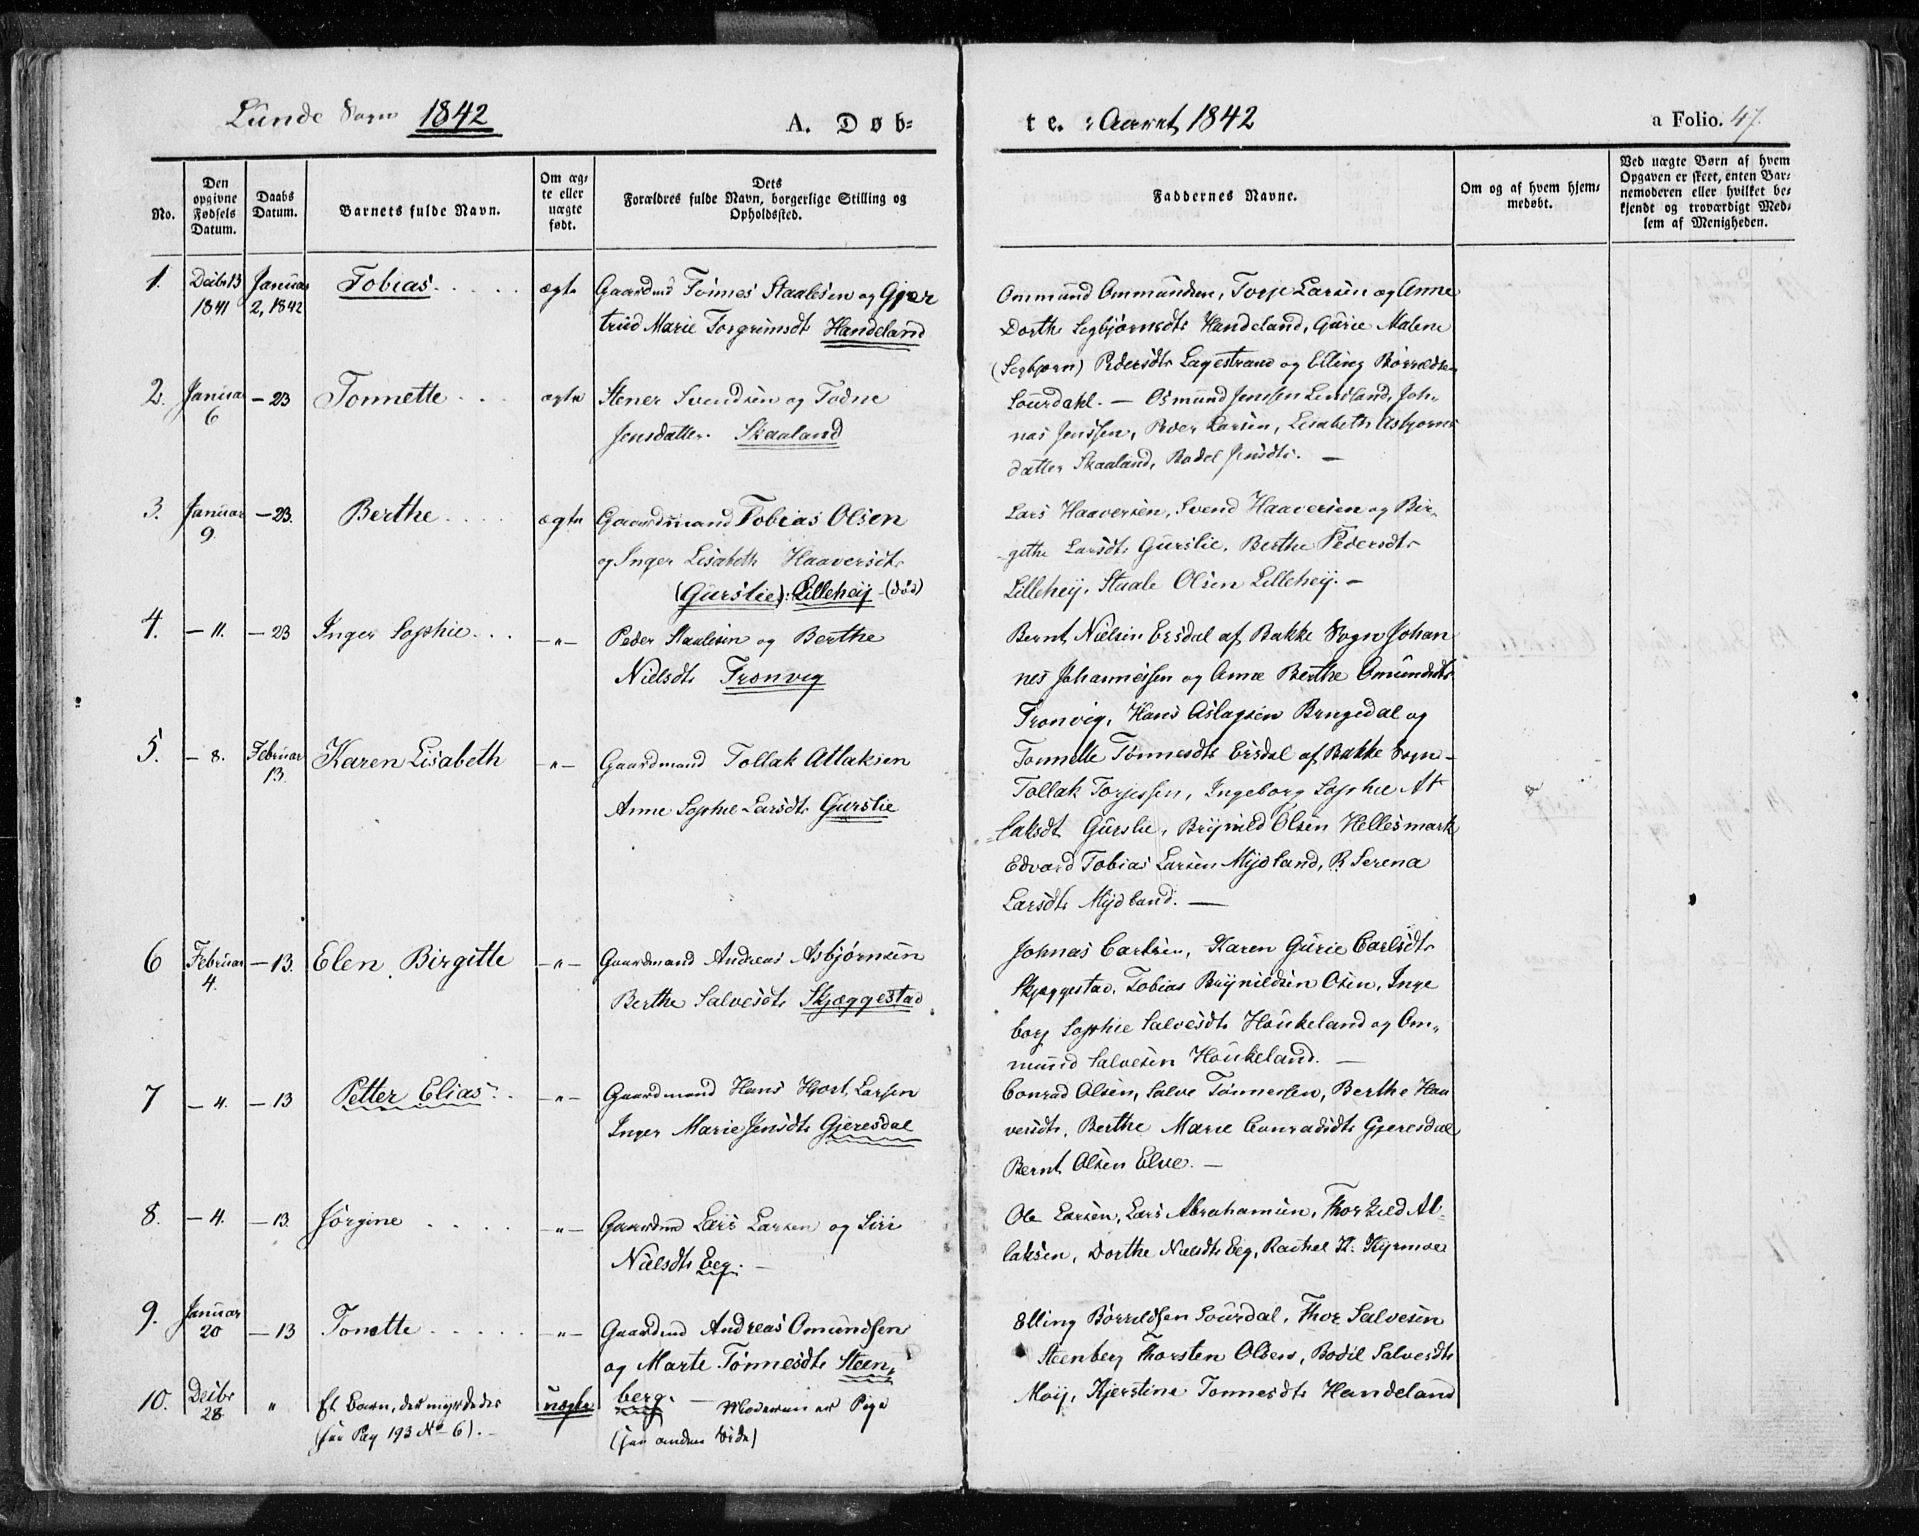 Lunde Sogn 1842
A. Døb-
te. Aaret 1842
a Folio. 47.
No.
Den opgivne Fødsels Datum.
Daabs Datum.
Barnets fulde Navn.
Om ægte eller uægte født.
Dets Forældres fulde Navn, borgerlige Stilling og Opholdssted.
Faddernes Navne.
Om og af hvem hjemmedøbt.
Ved uægte Børn af hvem Opgaven er skeet, enten Barnemoderen eller hvilket bekjendt og troværdigt Medlem af Menigheden.
1. Decbr 13 1841 Januar 2, 1842 Tobias ægte
Gaardmd Tønnes Staalesen og Gjer
trud Marie Torgrimsdtr Handeland
Ommund Ommundsen, Torje Larsen og Anne
Dorthe Segbjørnsdtr Handeland, Gurie Malene
(Segbjørn) Pedersdtr Lagestrand og Elling Børrildsen
Sourdahl. —
2. Januar 6 — 23 Tonnette ægte
Stener Svendsen og Todne
Jensdatter. Skaaland
Osmund Jenssen Linland, Joh-
nas Jenssen, Peder Larsen, Lisabeth Asbjørns
datter Skaaland, Bodel Jensdtr. —
3. Januar 9 — 23. Berthe ægte
Gaardmand Tobias Olsen
og Inger Lisabeth Haaversdtr
(Gurslie): Lillehey (død)
Lars Haaversen, Svend Haaversen og Bir-
githe Larsdtr Gurslie, Berthe Pedersdtr
Lillehey, Staale Olsen Lillehey. —
4. — 11. — 23 Inger Sophie — " —
Peder Staalesen og Berthe
Nielsdtr Tronvig
Bernt Nielsen Ersdal af Bakke Sogn Johan
nes Johannessen og Anne Berthe Omundsdtr
Tronvig, Hans Aslagsen Bringedal og
Tonnette Tønnesdtr Ersdal af Bakke Sogn —
5. — 8. Februar 13. Karen Lisabeth — " —
Gaardmand Tollak Atlaksen
Anne Sophie Larsdtr Gurslie
Tollak Torjessen, Ingeborg Sophie At
laksdt Gurslie, Brynild Olsen Hellesmark
Edvard Tobias Larsen Mydland, B. Serena
Larsdtr Mydland. —
6 Februar 4. — 13. Elen Birgitte — " —
Gaardmand Andreas Asbjørnsen
Berthe Salvesdtr Skjæggestad
Johnas Carlsen, Karen Gurie Carlsdtr
Skjæggestad, Tobias Brynildsen Osen, Inge
borg Sophie Salvesdtr Houkeland og Om-
mund Salvesen Houkeland. —
7 — 4. — 13 Petter Elias — " —
Gaardmand Hans Hjort Larsen
Inger Marie Jensdtr Gjeresdal
Conrad Olsen, Salve Tønnessen, Berthe Haa
versdtr, Berthe Marie Conradsdtr Gjeresdal
Bernt Olsen Elve. —
8. — 4. — 13. Jørgine — " —
Gaardmd Lars Larsen og Siri
Nielsdtr Eeg. —
Ole Larsen, Lars Abrahamsen, Thorkild At-
laksen, Dorthe Nielsdtr Eeg, Rachel K. Kyrmoe
9. Januar 20 — 13 Tonette — " —
Gaardmd Andreas Omundsen
og Marte Tønnesdtr Steen-
berg. —
Elling Børrildsen Sourdal, Thor Salvesen
Steenberg Thorsten Olsen, Bodil Salvesdtr
Moy, Kjerstine Tonnesdtr Handeland
10. Decbr 28 " Et Barn, der myrdedes uægte
(see Pag 193 No 6). —
Moderen er Pige
(see anden Side)